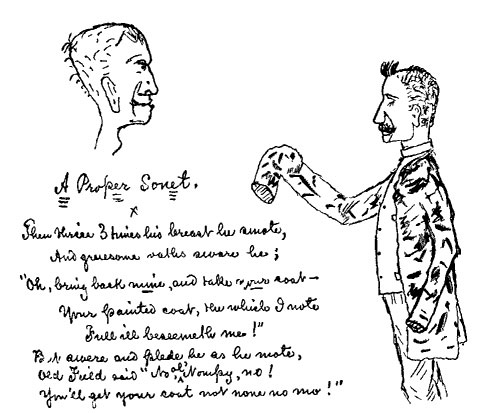 A Proper Sonet.
x
Then thrice 3 times his breast he smote,
And gruesome oaths swore he;
"Oh, bring back mine, and take your coat—
Your painted coat, the which I note
Full ill beseemeth me!"
But swere and plede he as he mote,
Old Field said "No ol' Nompy, no!
You'll get your coat not none no mo!"